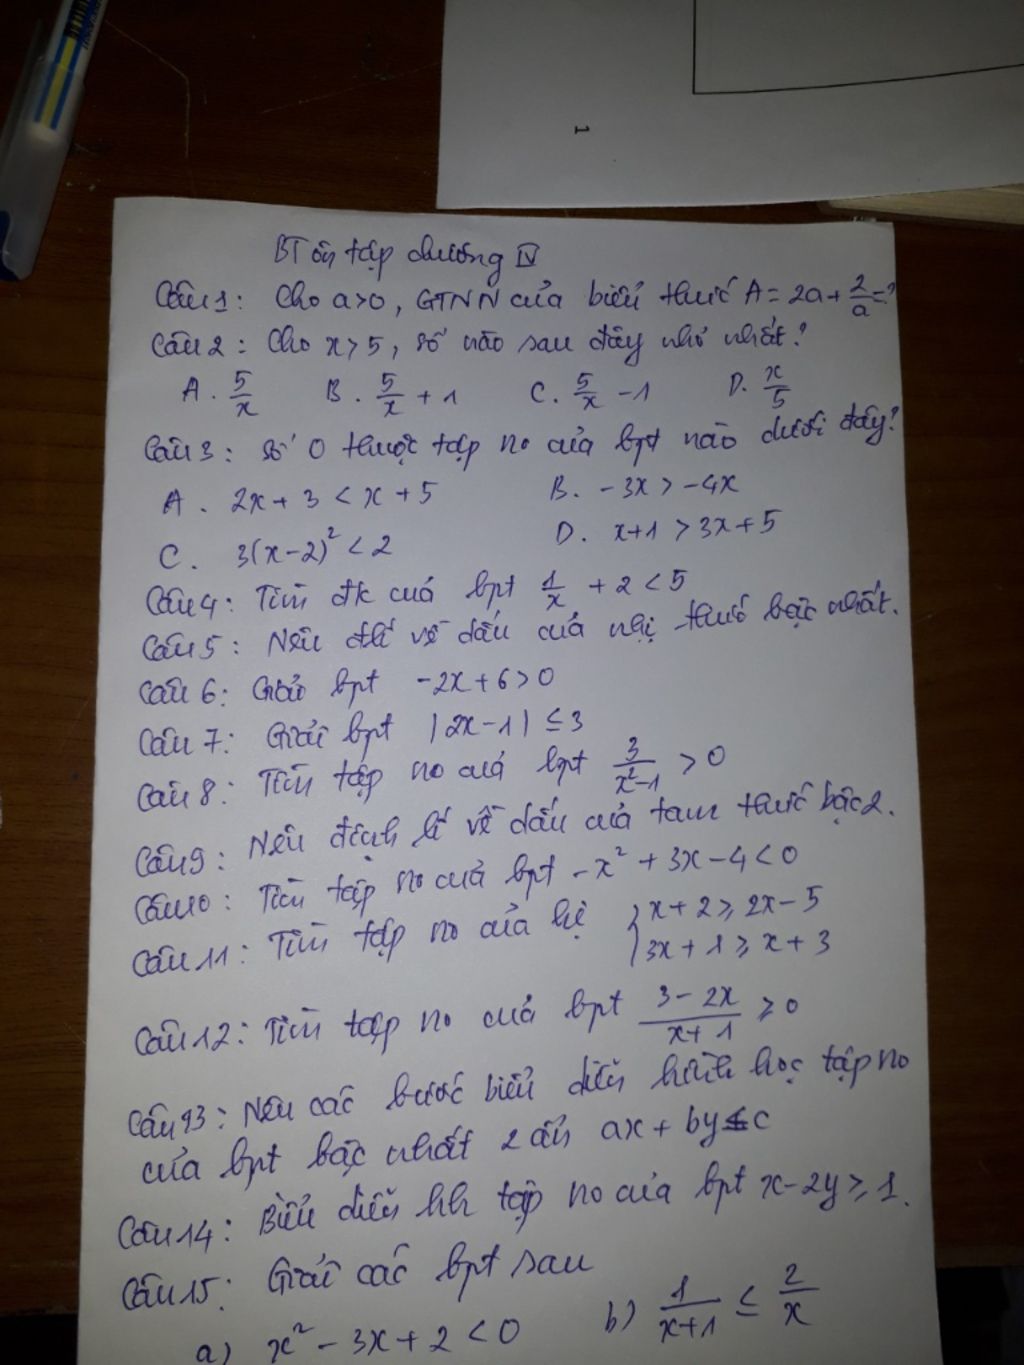 BT ôn tập chương IV
Câu 1: Cho a>0, GTNN của biểu thức A = 2a + 2/a = ?
Câu 2: Cho x > 5, số nào sau đây nhỏ nhất?
A. 5/x B. 5/x + 1 C. 5/x - 1 D. x/5
Câu 3: Số 0 thuộc tập no của bpt nào dưới đây?
A. 2x + 3 < x + 5 B. -3x > -4x
C. 3(x-2)² < 2 D. x+1 > 3x+5
Câu 4: Tìm đk của bpt 1/x + 2 < 5
Câu 5: Nêu đlí về dấu của nhị thức bậc nhất.
Câu 6: Giải bpt -2x+6>0
Câu 7: Giải bpt |2x-1| ≤ 3
Câu 8: Tìm tập no của bpt 3/(x²-1) > 0
Câu 9: Nêu định lí về dấu của tam thức bậc 2.
Câu 10: Tìm tập no của bpt -x² + 3x - 4 < 0
Câu 11: Tìm tập no của hệ { x + 2 ≥ 2x - 5
3x + 1 ≥ x + 3
Câu 12: Tìm tập no của bpt (3 - 2x)/(x+1) ≥ 0
Câu 13: Nêu các bước biểu diễn hình học tập no
của bpt bậc nhất 2 ẩn ax + by ≤ c
Câu 14: Biểu diễn hh tập no của bpt x - 2y ≥ 1.
Câu 15: Giải các bpt sau
a) x² - 3x + 2 < 0 b) 1/(x+1) ≤ 2/x
1